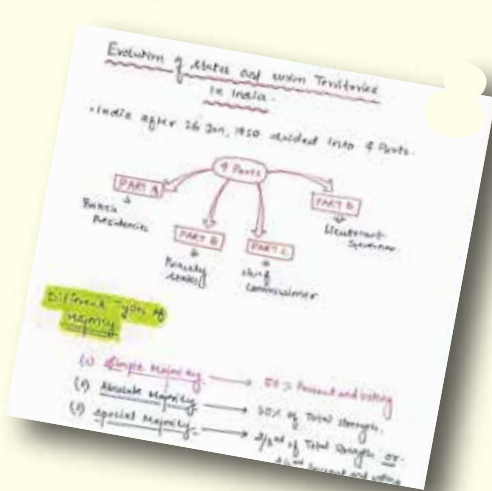 Evolution of states and union Territories
in India.
• India after 26 Jan, 1950 divided into 4 Parts.
4 Parts
PART A
British
Presidencies
PART B
Princely
states
PART C
chief
commissioner
PART D
Lieutenant
Governor
Different Types of
Majority
(1) Simple Majority → 50% Present and voting
(2) Absolute Majority → 50% of Total strength.
(3) Special Majority → 2/3rd of Total strength or
Present and voting